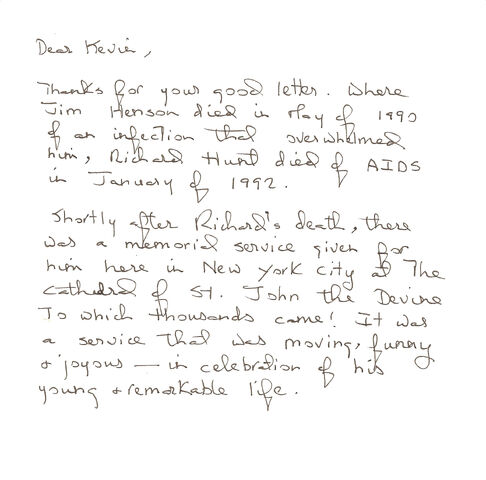 Dear Kevin,
Thanks for your good letter. Where
Jim Henson died in May of 1990
of an infection that overwhelmed
him, Richard Hunt died of AIDS
in January of 1992.
Shortly after Richard's death, there
was a memorial service given for
him here in New York City at The
Cathedral of St. John the Devine
To which thousands came! It was
a service that was moving, funny
& joyous — in celebration of his
young & remarkable life.